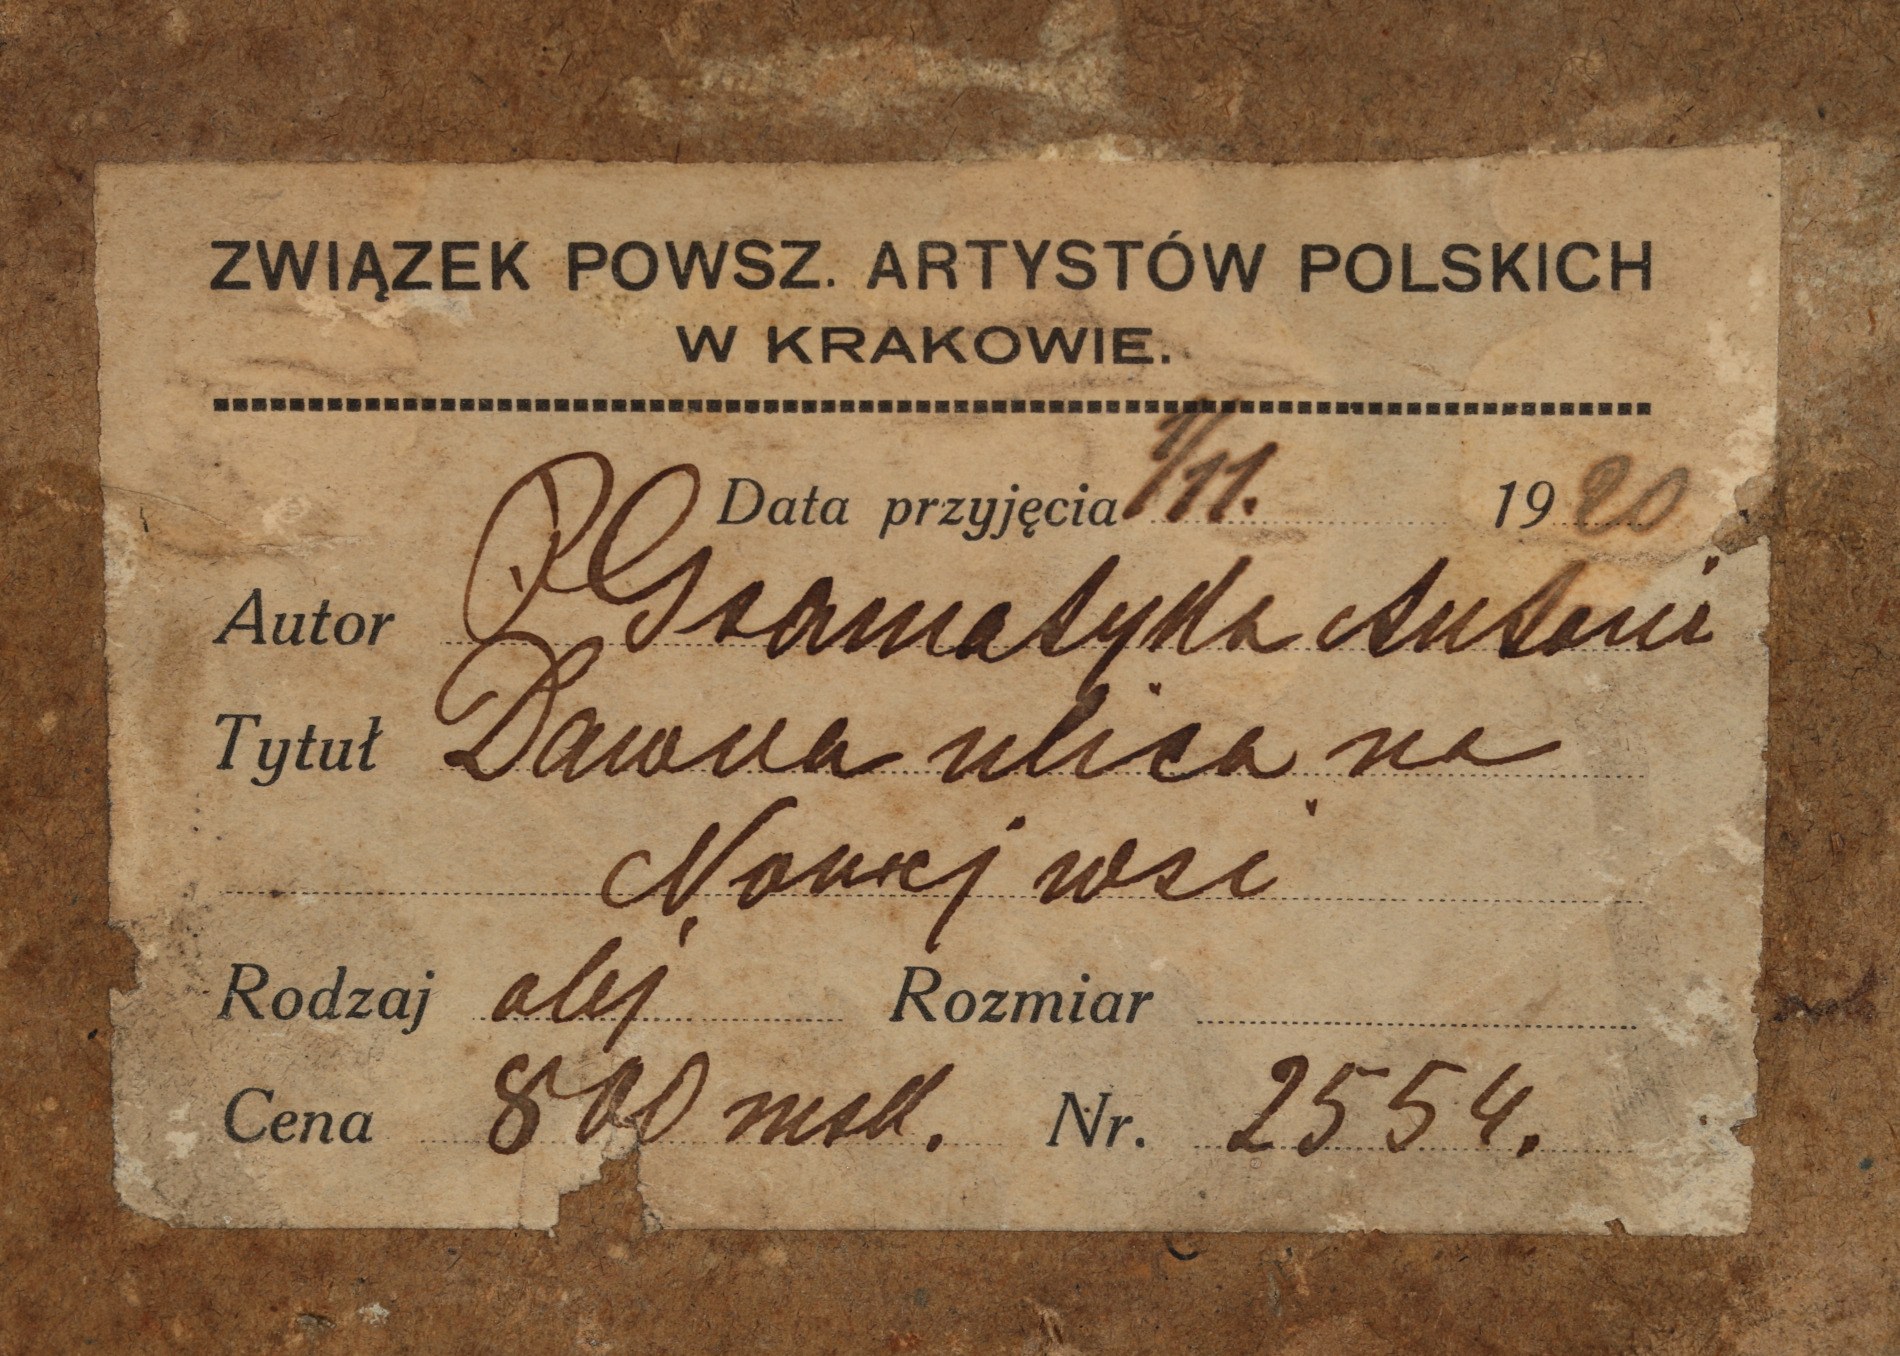 ZWIĄZEK POWSZ. ARTYSTÓW POLSKICH
W KRAKOWIE.
Data przyjęcia 1/11. 1920
Autor P Gramatyka Antoni
Tytuł Dawna ulica na
Nowej wsi
Rodzaj olej Rozmiar
Cena 800 mk. Nr. 2554.